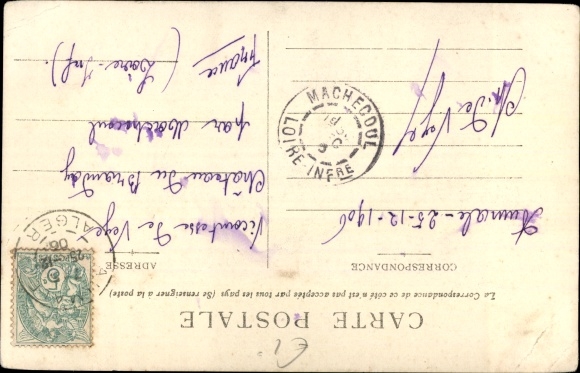 CARTE POSTALE
La Correspondance de ce côté n'est pas acceptée par tous les pays (Se renseigner à la poste)
CORRESPONDANCE
ADRESSE
Aumale - 25-12-1906
de Vege
Vicomtesse de Vege
Château du Branday
par Machecoul
(Loire-Inf)
France
MACHECOUL
LOIRE-INFRE
ALGER
25
06